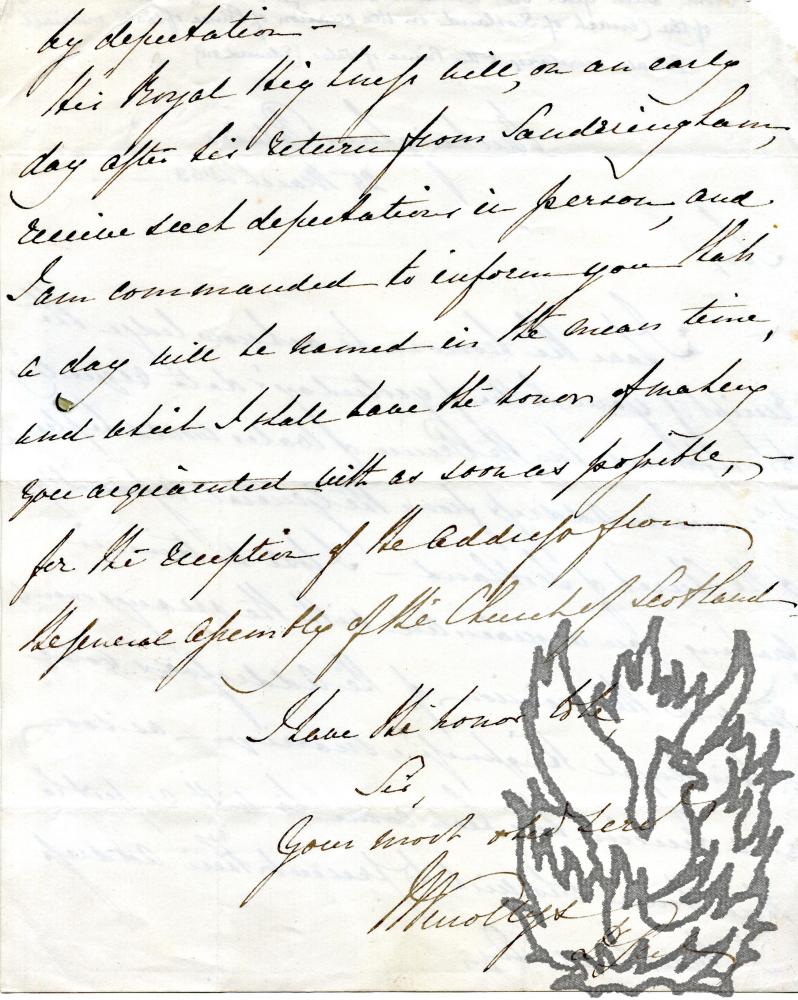 by deputation –
His Royal Highness will, on an early
day after his return from Sandringham,
receive such deputations in person, and
I am commanded to inform you that
a day will be named in the mean time,
and which I shall have the honor of making
you acquainted with as soon as possible, –
for the reception of the Address from
the General Assembly of the Church of Scotland
I have the honor to be,
Sir,
Your most obed Serv
Knollys